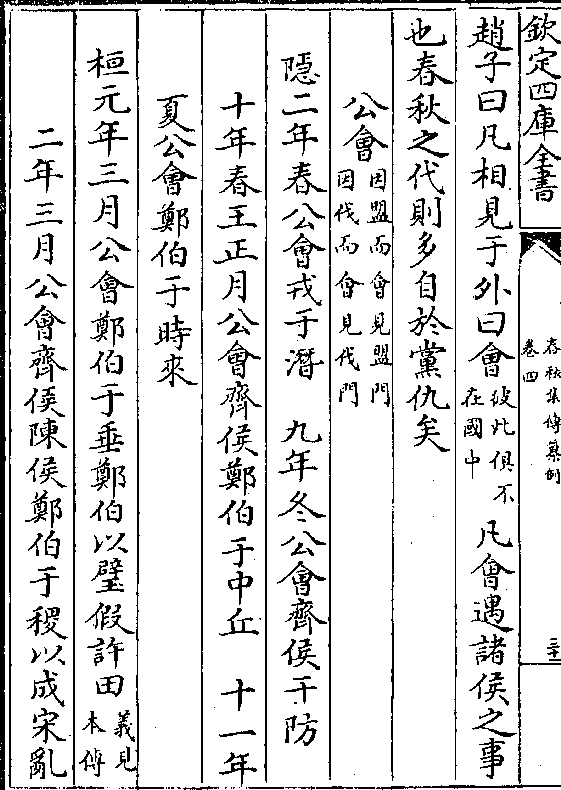 欽定四庫全書
春秋集傳纂例
卷四
三十二
趙子曰凡相見于外曰會彼此俱不在國中凡會遇諸侯之事
也春秋之代則多自於黨仇矣
公會因盟而會見盟門因伐而會見伐門
隱二年春公會戎于潛 九年冬公會齊侯于防
十年春王正月公會齊侯鄭伯于中丘 十一年
夏公會鄭伯于時來
桓元年三月公會鄭伯于垂鄭伯以璧假許田義見本傳
二年三月公會齊侯陳侯鄭伯于稷以成宋亂